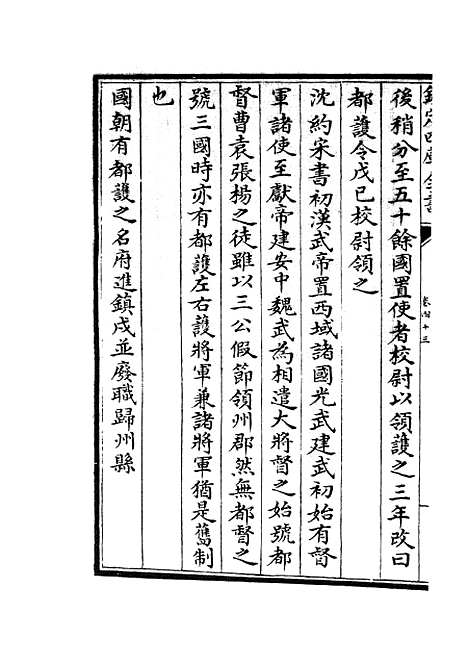 欽定四庫全書
卷四十三
後稍分至五十餘國置使者校尉以領護之三年改曰
都護令戊已校尉領之
沈約宋書初漢武帝置西域諸國光武建武初始有督
軍諸使至獻帝建安中魏武為相遣大將督之始號都
督曹袁張楊之徒雖以三公假節領州郡然無都督之
號三國時亦有都護左右護將軍兼諸將軍猶是舊制
也
國朝有都護之名府進鎮戍並廢職歸州縣